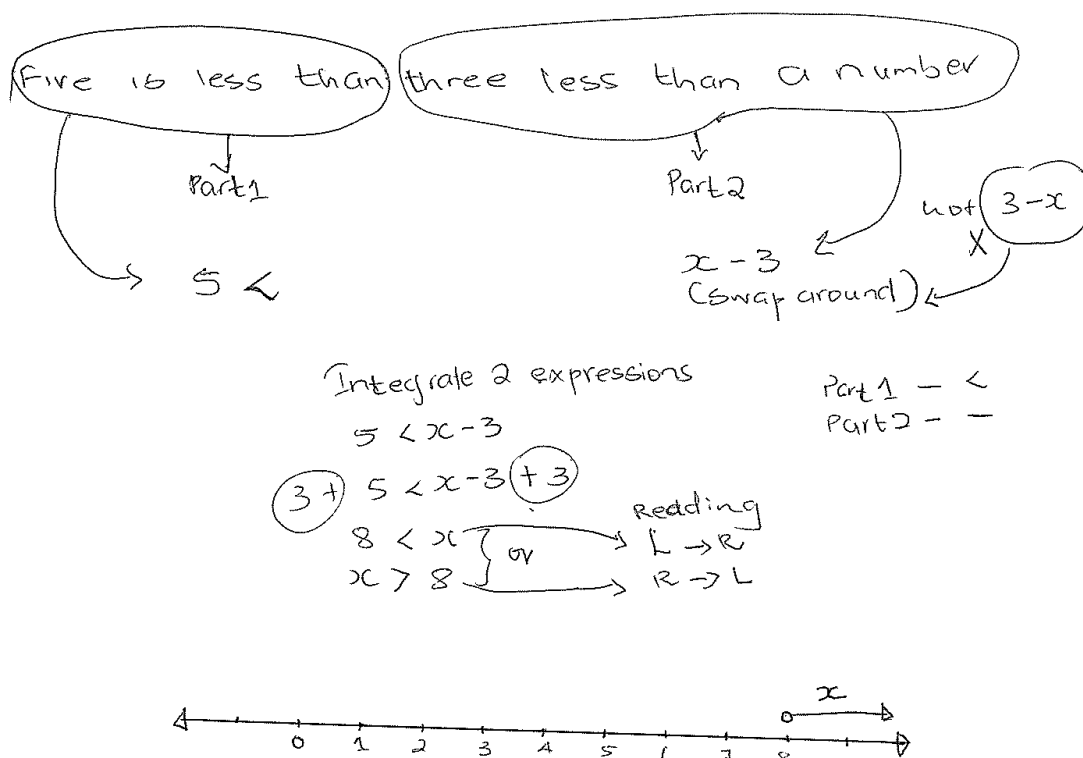 Five is less than three less than a number
Part1
Part2
not 3-x
X
5 <
x-3
(swap around)
Integrate 2 expressions
Part1 - <
Part2 - -
5 < x-3
3+ 5 < x-3 +3
Reading
8 < x
or
L → R
x > 8
R → L
x
0 1 2 3 4 5